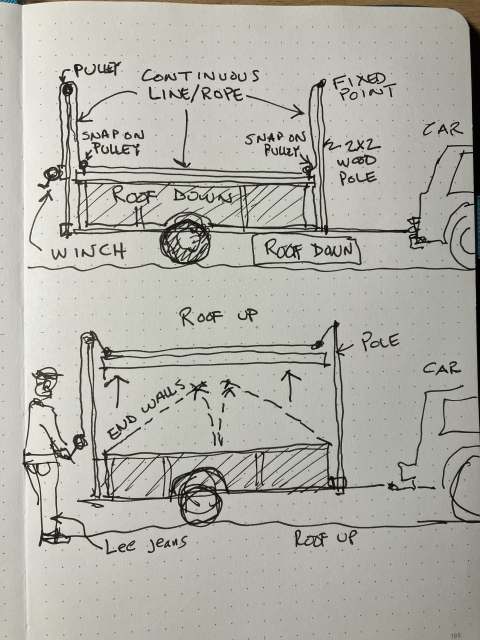 PULLEY
CONTINUOUS
LINE/ROPE
FIXED
POINT
CAR
SNAP ON
PULLEY
SNAP ON
PULLEY
2X2
WOOD
POLE
ROOF DOWN
WINCH
ROOF DOWN
ROOF UP
POLE
CAR
END WALLS
Lee jeans
ROOF UP
185